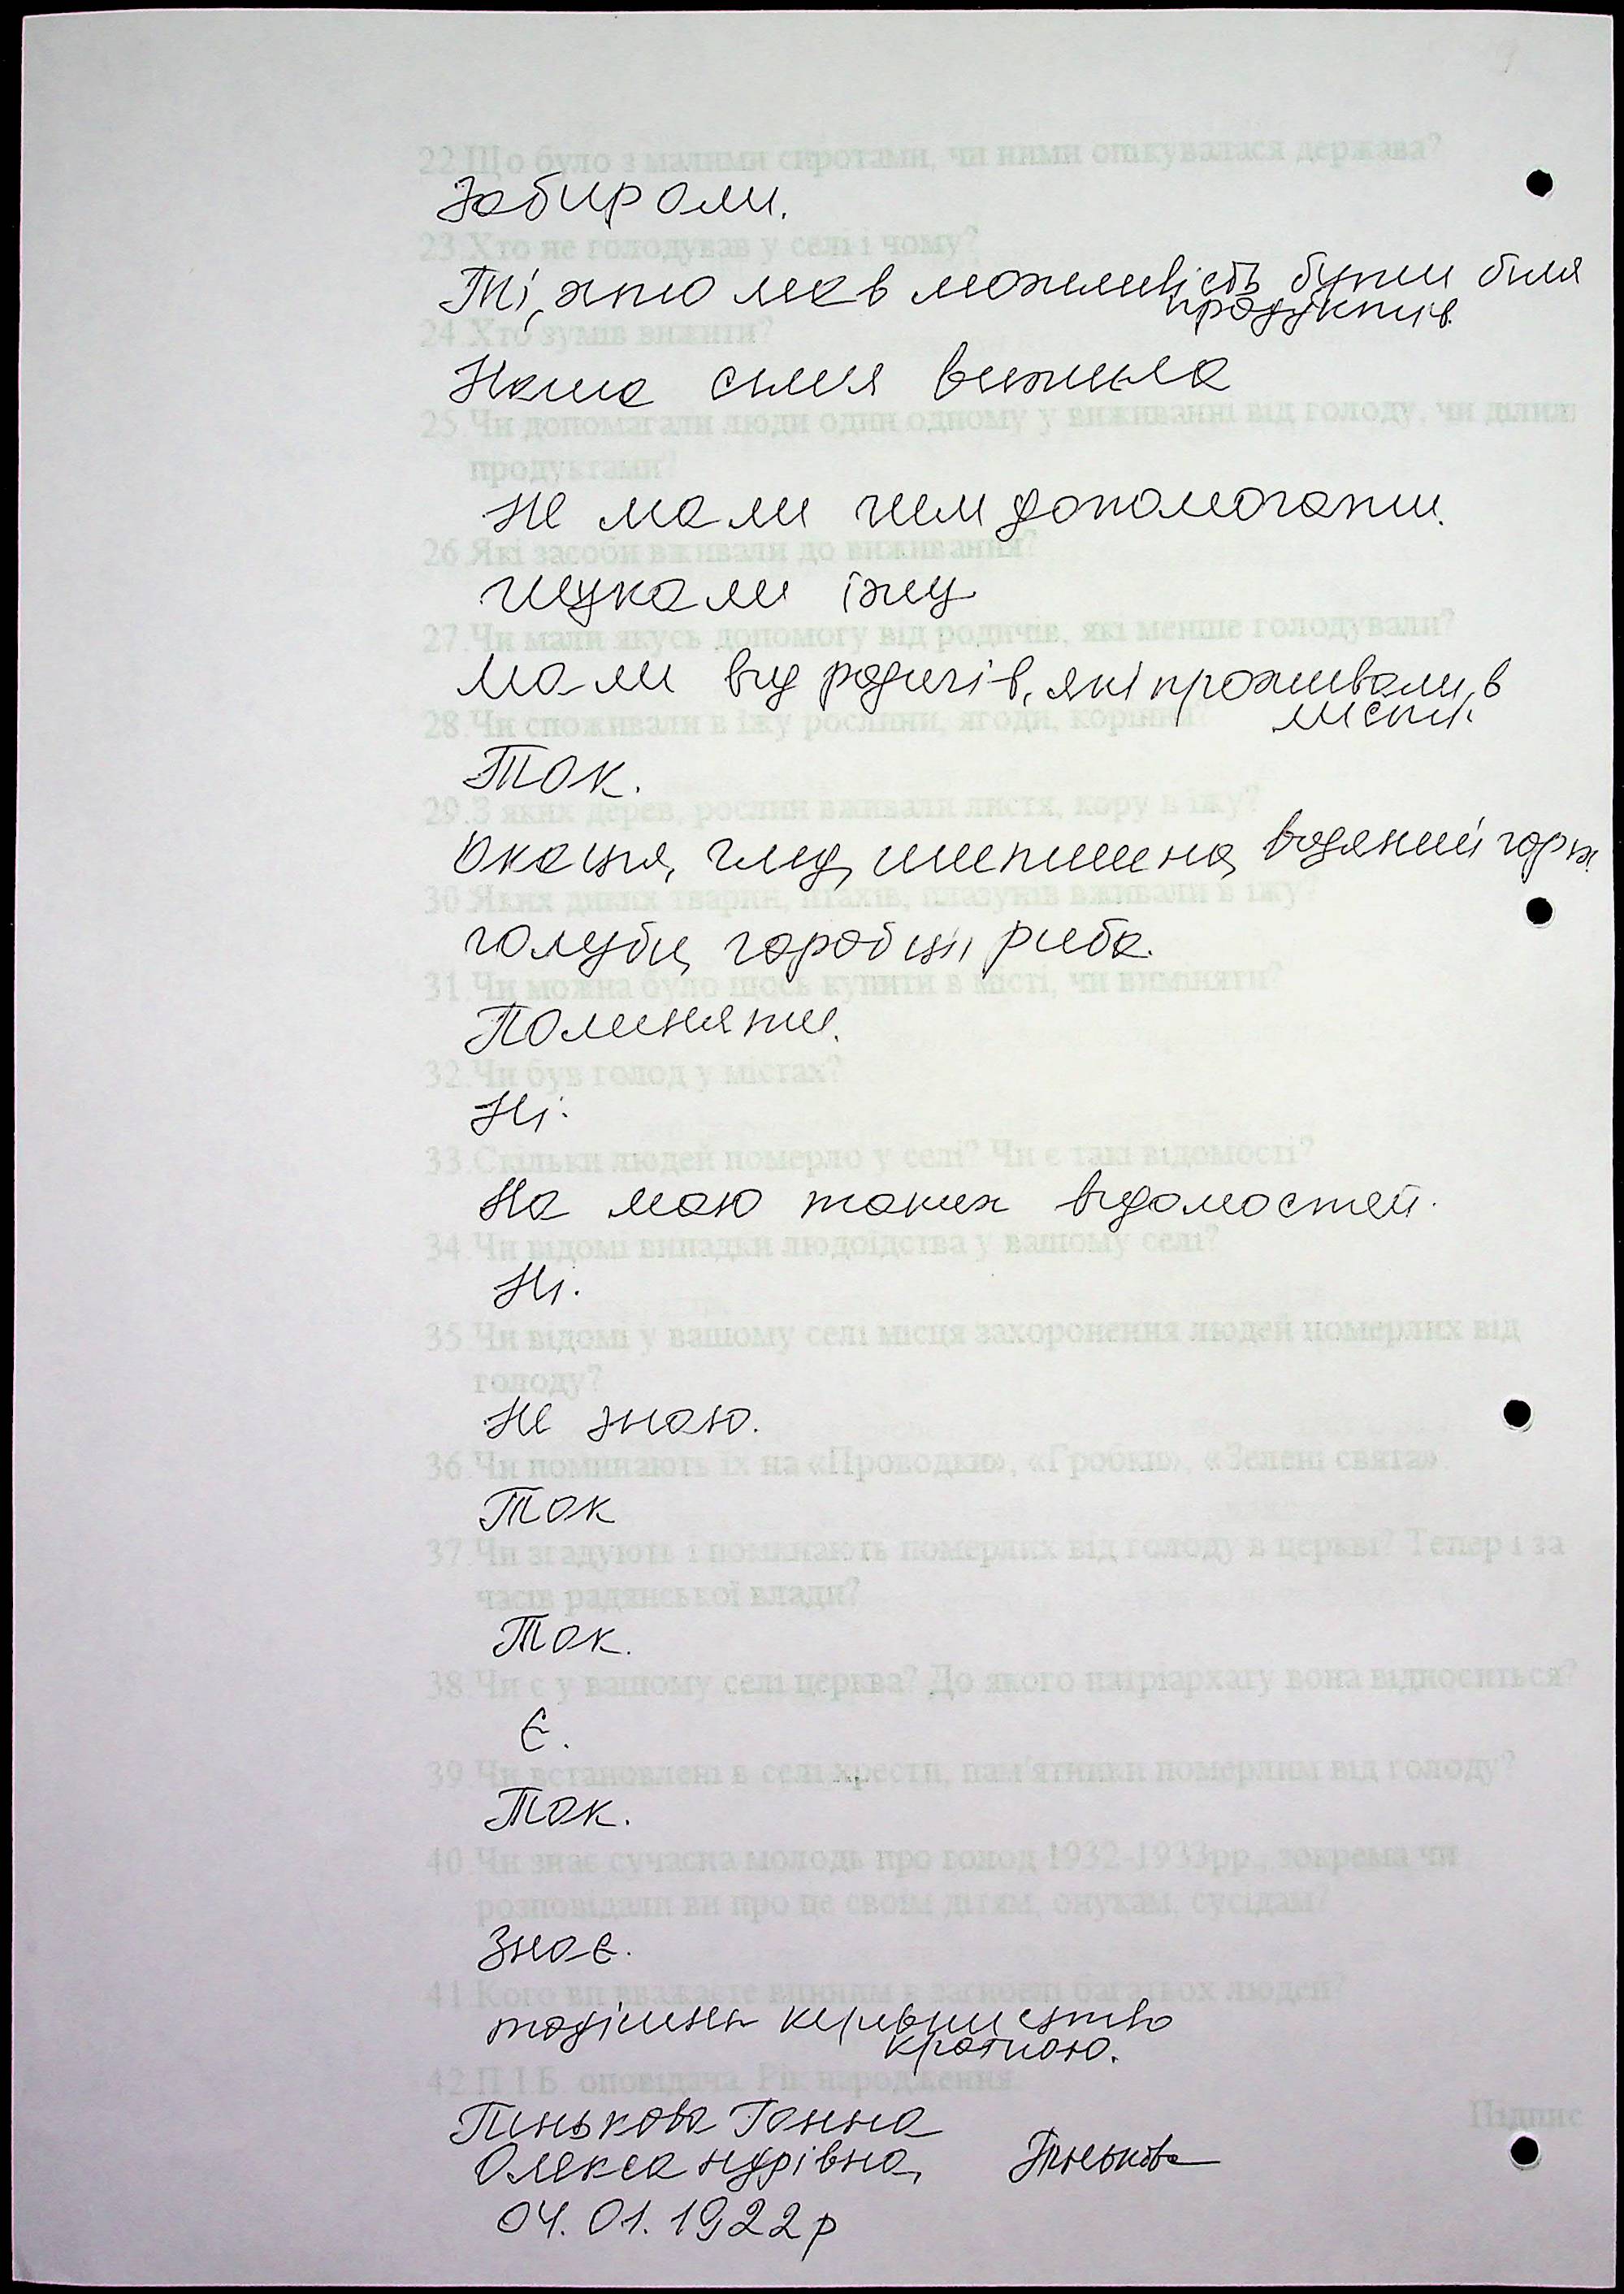 22.Що було з малими сиротами, чи ними опікувалася держава?
Забирали.
23.Хто не голодував у селі і чому?
Ті, хто мав можливість бути біля
продуктів.
24.Хто зумів вижити?
Наша сім'я вижила
25.Чи допомагали люди один одному у виживанні від голоду, чи ділили
продуктами?
Не мали чим допомогати.
26.Які засоби вживали до виживання?
Шукали їжу
27.Чи мали якусь допомогу від родичів, які менше голодували?
Мали від родичів, які проживали в
місті.
28.Чи споживали в їжу рослини, ягоди, коріння?
Так.
29.З яких дерев, рослин вживали листя, кору в їжу?
Окація, глид, шипшина, водяний горіх
30.Яких диких тварин, птахів, плазунів вживали в їжу?
голуби, горобці, риба.
31.Чи можна було щось купити в місті, чи виміняти?
Поміняти.
32.Чи був голод у містах?
Ні.
33.Скільки людей померло у селі? Чи є такі відомості?
На маю таких відомостей.
34.Чи відомі випадки людоїдства у вашому селі?
Ні.
35.Чи відомі у вашому селі місця захоронення людей померлих від
голоду?
Не знаю.
36.Чи поминають їх на «Проводки», «Гробки», «Зелені свята».
Так
37.Чи згадують і поминають померлих від голоду в церкві? Тепер і за
часів радянської влади?
Так.
38.Чи є у вашому селі церква? До якого патріархату вона відноситься?
Є.
39.Чи встановлені в селі хрести, пам'ятники померлим від голоду?
Так.
40.Чи знає сучасна молодь про голод 1932-1933рр., зокрема чи
розповідали ви про це своїм дітям, онукам, сусідам?
Знає.
41.Кого ви вважаєте винним в загибелі багатьох людей?
тодішнє керівництво
країною.
42.П.І.Б. оповідача. Рік народження.
Підпис
Пінькова Ганна
Олександрівна,
04.01.1922р